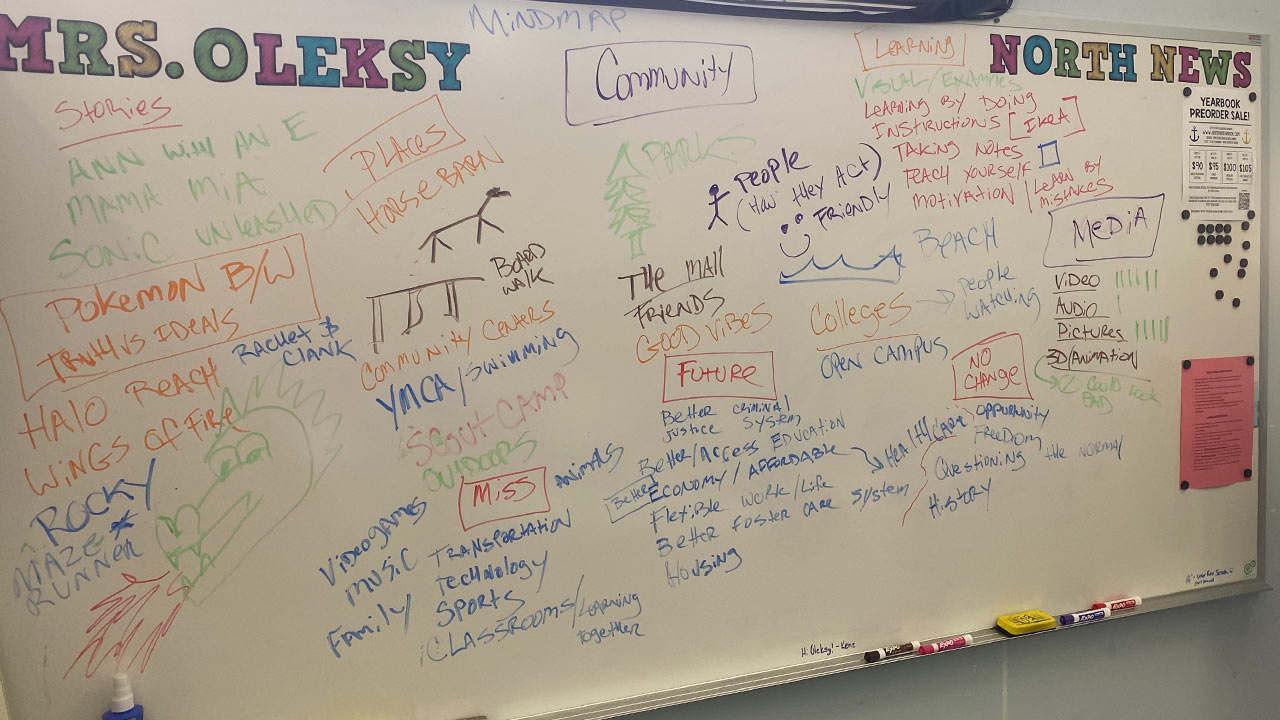 MRS. OLEKSY
MINDMAP
NORTH NEWS
Community
Stories
ANN with AN E
MAMA MiA
SONiC UNLEASHED
POKEMON B/W
TRUTH VS IDEALS
RACHET &
CLANK
HALO REACH
WiNGS OF FIRE
ROCKY
MAZE
RUNNER
PLACES
HORSE BARN
BOARD
WALK
COMMUNITY CENTERS
YMCA/SWIMMING
SCOUT CAMP
OUTDOORS
PARKS
PEOPLE
(HOW THEY ACT)
FRIENDLY
THE MALL
FRIENDS
GOOD VIBES
BEACH
PEOPLE
WATCHING
Colleges
OPEN CAMPUS
LEARNING
VISUAL/EXAMPLES
LEARNING BY DOING
INSTRUCTIONS [IKEA]
TAKING NOTES
TEACH YOURSELF
MOTIVATION
LEARN BY
MISTAKES
MEDiA
VIDEO
AUDIO
PICTURES
3D/ANIMATION
COULD LOOK
BAD
MISS
ANIMALS
VIDEOGAMES
MUSIC
FAMILY
TRANSPORTATION
TECHNOLOGY
SPORTS
CLASSROOMS/LEARNING
TOGETHER
FUTURE
BETTER CRIMINAL
JUSTICE SYSTEM
BETTER/ACCESS EDUCATION
BETTER ECONOMY/AFFORDABLE
HEALTHCARE
FLEXIBLE WORK/LIFE
BETTER FOSTER CARE SYSTEM
HOUSING
NO
CHANGE
OPPORTUNITY
FREEDOM
QUESTIONING THE NORMAL
HISTORY
YEARBOOK
PREORDER SALE!
$90 $95 $100 $105
Hi Oleksy! - Kenz
EXPO
EXPO
EXPO
EXPO